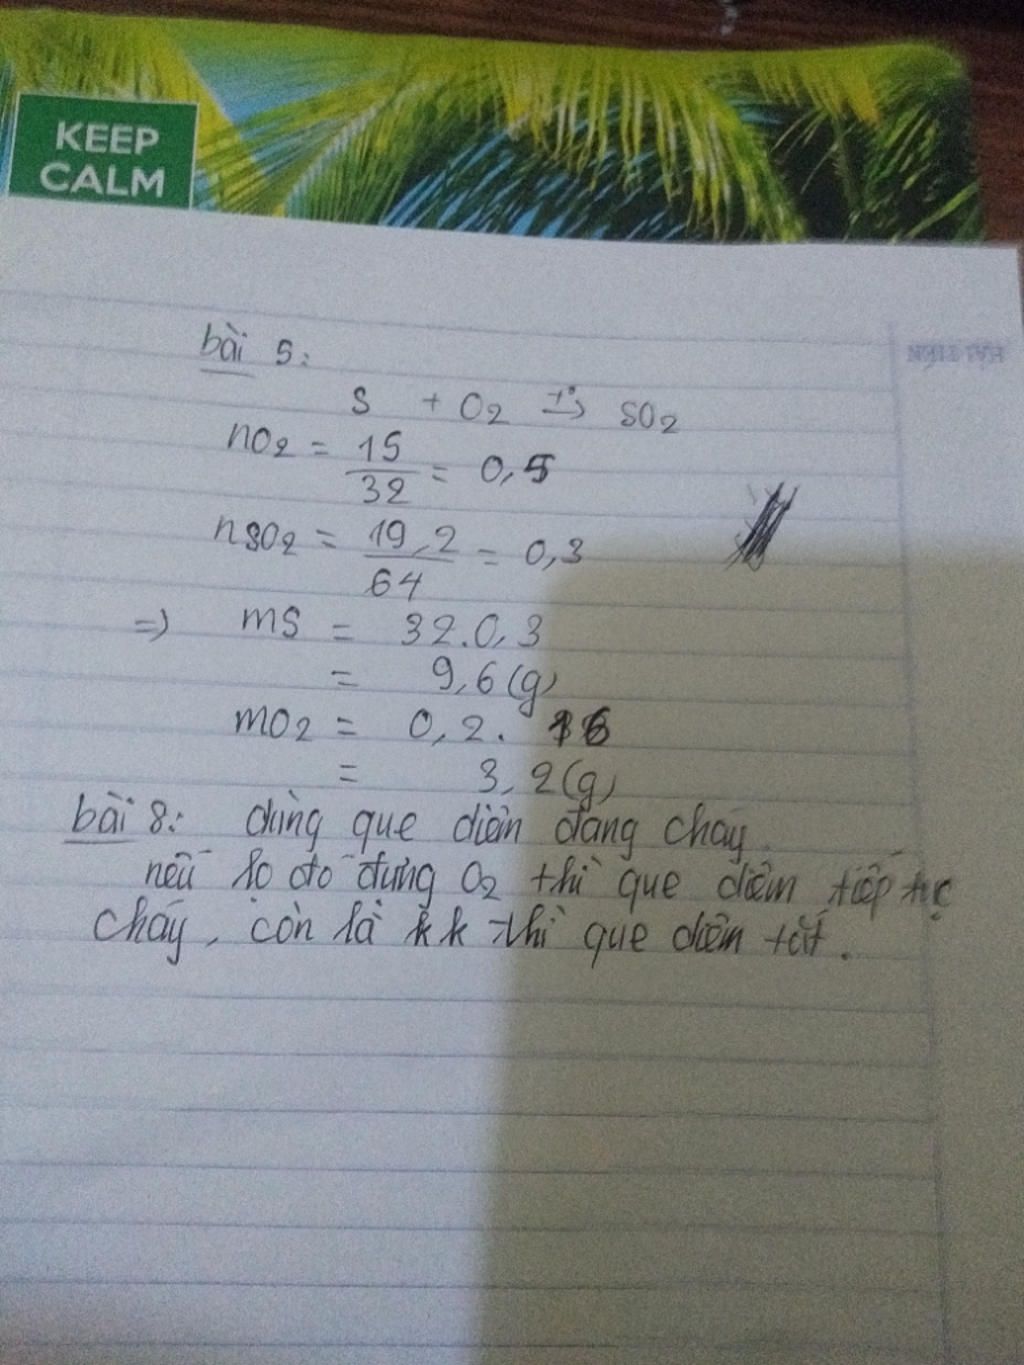 KEEP
CALM
bài 5:
S + O2 t°→ SO2
nO2 = 15/32 = 0,5
nSO2 = 19,2/64 = 0,3
=) mS = 32.0,3
= 9,6(g)
mO2 = 0,2. 16
= 3,2(g)
bài 8: dùng que diêm đang cháy.
nếu lọ đó đựng O2 thì que diêm tiếp tục
cháy, còn là kk thì que diêm tắt.